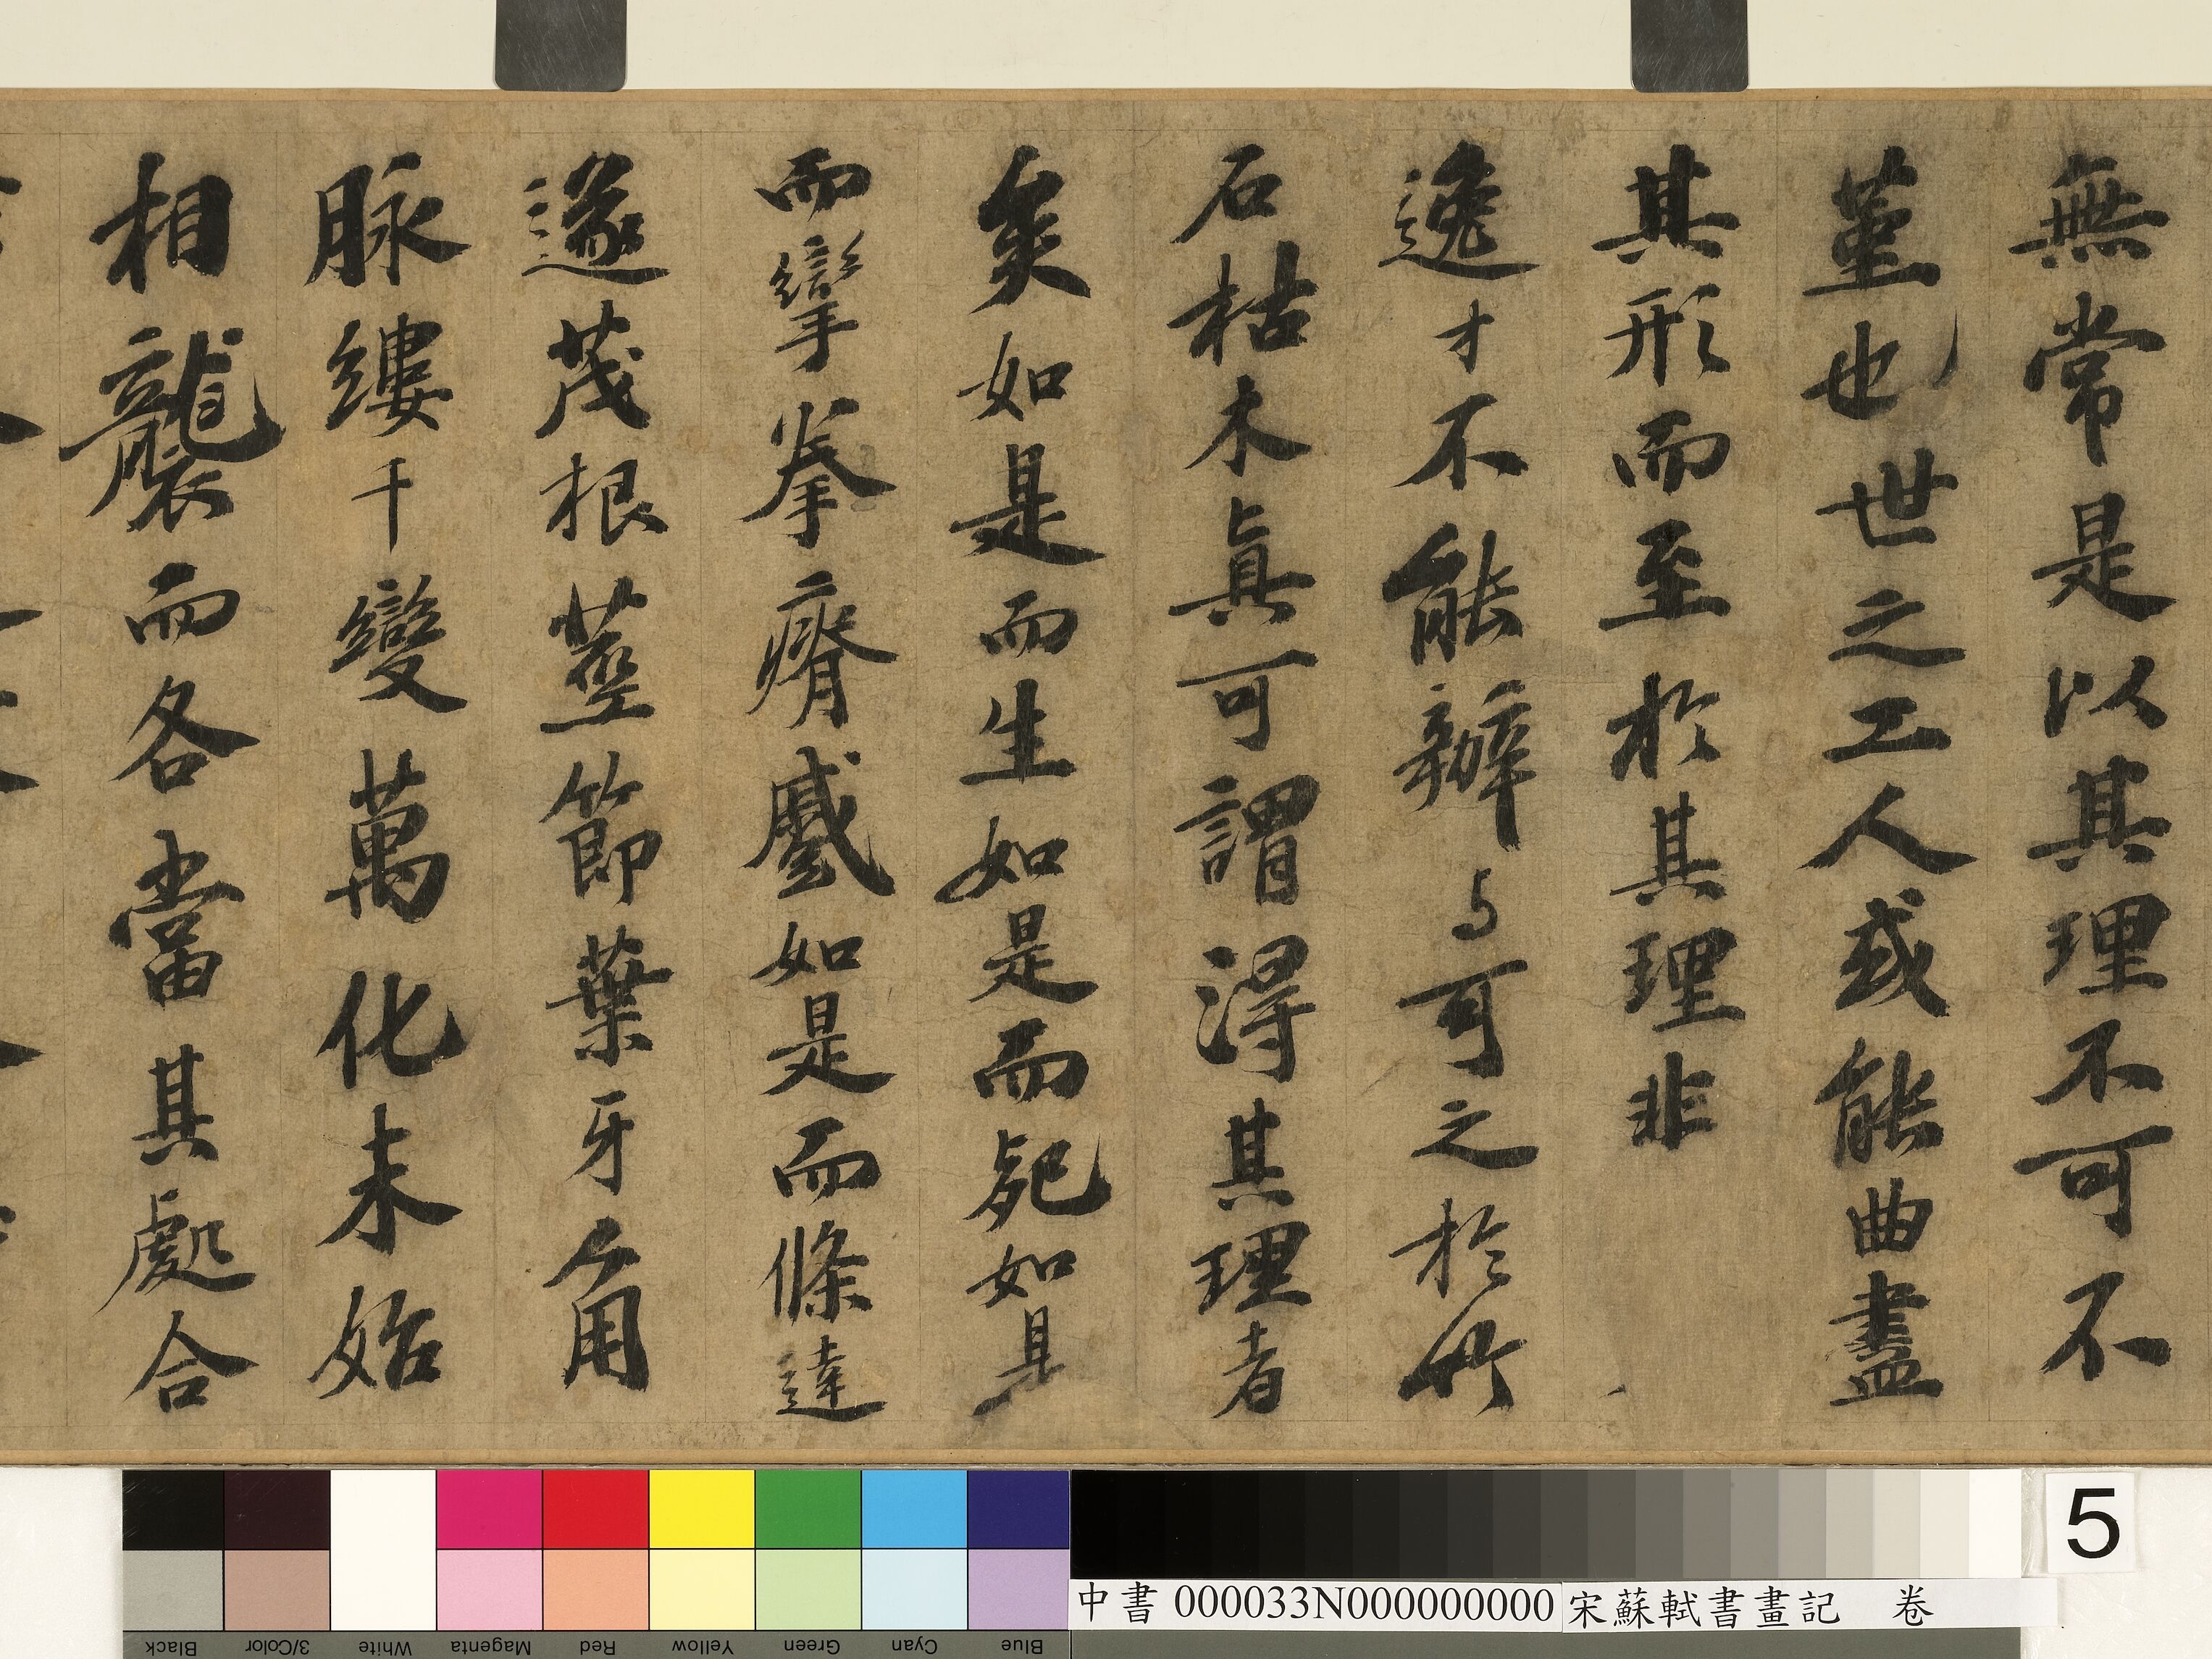 無常是以其理不可不
堇也世之工人或能曲盡
其形而至於其理非
逸才不能辦与可之於竹
石枯木真可謂淂其理者
矣如是而生如是而死如是
而攣拳瘠蹙如是而條達
遂茂根莖節葉牙角
脉縷千變萬化未始
相襲而各當其處合
中書 000033N000000000 宋蘇軾書畫記 卷
5
Black 3/Color White Magenta Red Yellow Green Cyan Blue